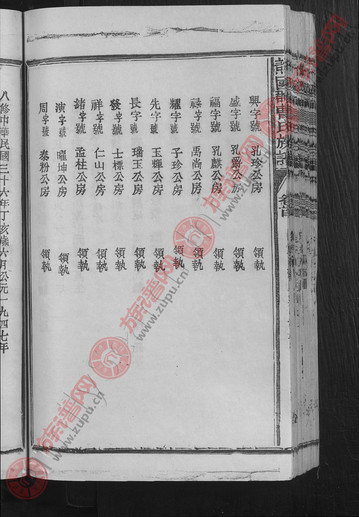 興字號 孔珍公房 領執
盛字號 孔爵公房 領執
福字號 孔麒公房 領執
祿字號 禹尚公房 領執
耀字號 子珍公房 領執
先字號 玉輝公房 領執
長字號 瑞玉公房 領執
發字號 士標公房 領執
祥字號 仁山公房 領執
緒字號 孟柱公房 領執
演字號 曜坤公房 領執
周字號 泰粉公房 領執
八修中華民國三十六年丁亥歲六月公元一九四七年
族譜网
www.zupu.cn